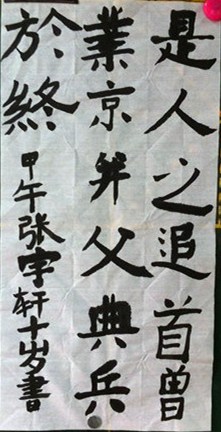 是人之追首曾
業京弁父典兵
於終
甲午张宇轩十岁書